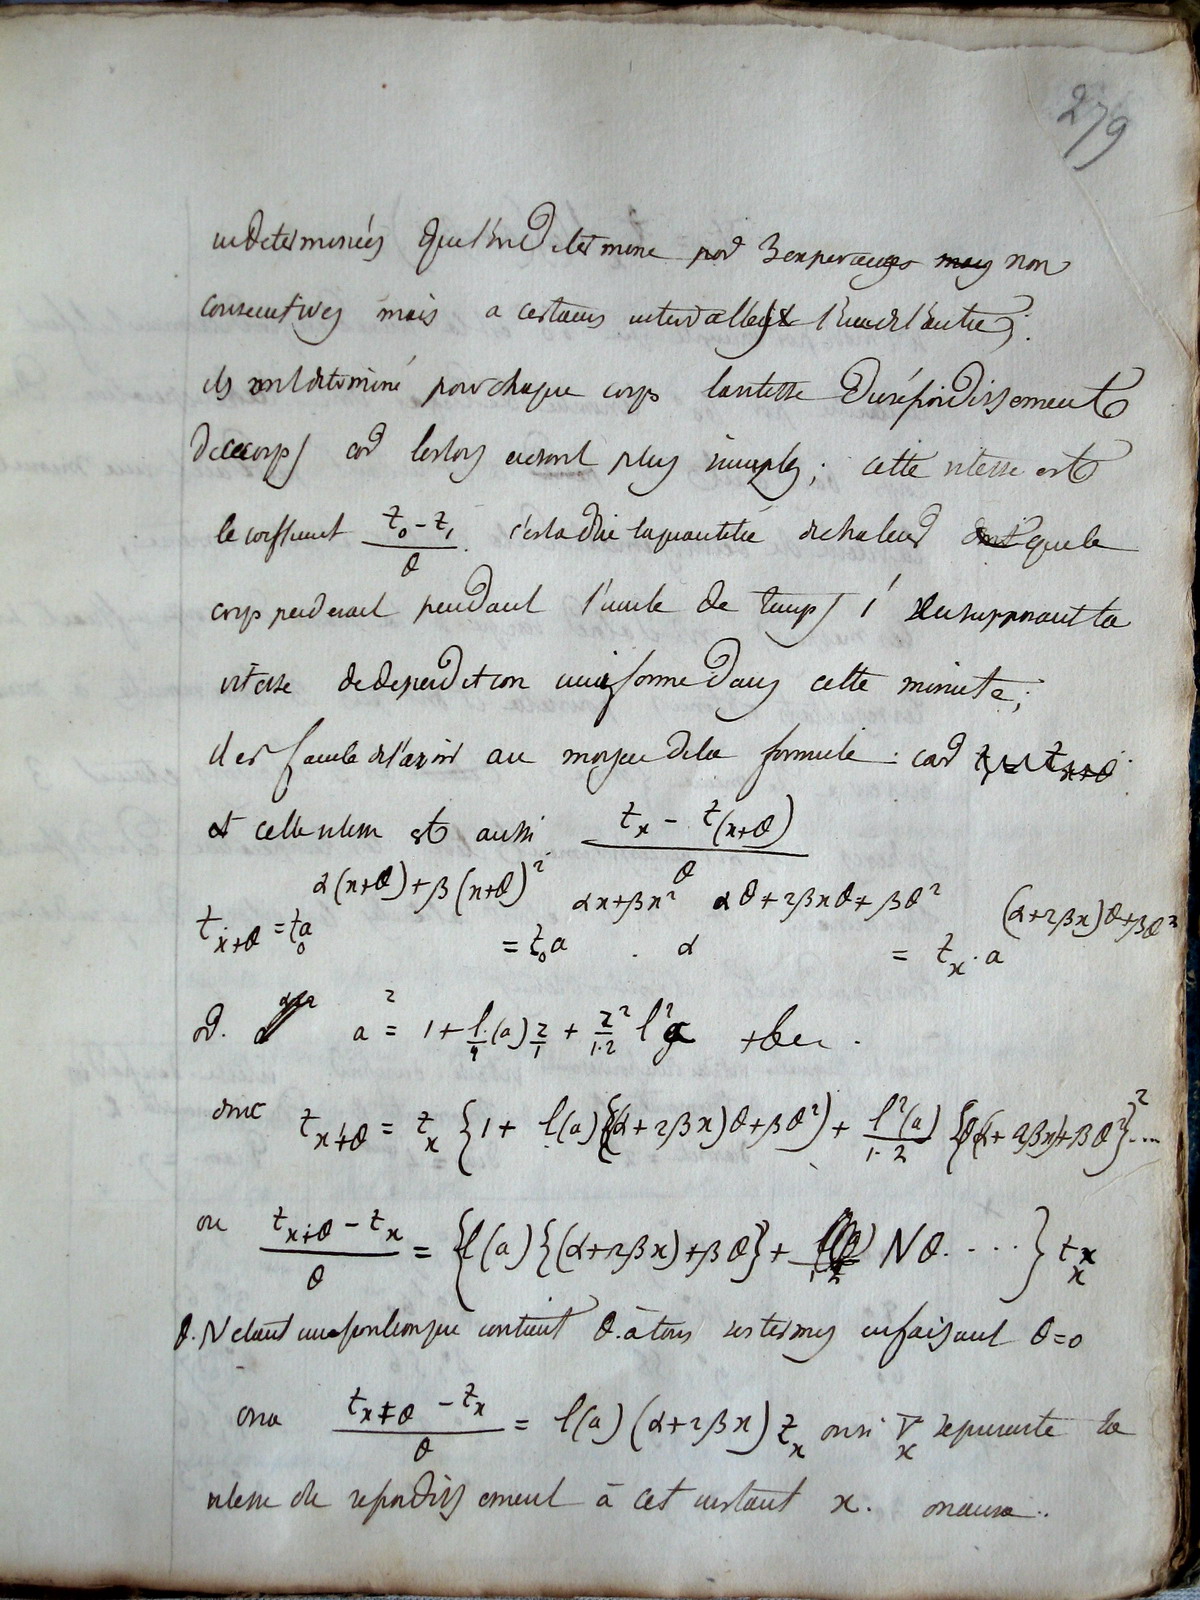 279
indeterminées que l'on determine par 3 experiences non
consecutives mais a certains intervalles l'une de l'autre;
ils ont determiné pour chaque corps la vitesse du refroidissement
de ce corps car les loix en sont plus simples; cette vitesse est
le coefficient (t₀ - t₁)/θ c'est a dire la quantitée de chaleur que le
corps perderait pendant l'unité de temps 1' en supposant la
vitesse de deperdition uniforme dans cette minute;
il est facile de l'avoir au moyen de la formule : car
et cette vitesse est aussi (t_x - t_(x+θ))/θ
t_{x+θ} = t₀a^{α(x+θ)+β(x+θ)²} = t₀a^{αx+βx²} . a^{αθ+2βxθ+βθ²} = t_x . a^{(α+2βx)θ+βθ²}
or. a^z = 1 + l.(a) z/1 + z²/1.2 l²a + &c .
donc t_{x+θ} = t_x {1 + l(a){(α+2βx)θ+βθ²) + l²(a)/1.2 {θ(α+2βx)+βθ²}² ....
ou (t_{x+θ} - t_x)/θ = {l(a){(α+2βx)+βθ} + Nθ. ....} t_x
θ.N etant une fonction que contient θ. à tous ses termes en faisant θ=0
on a (t_{x+θ} - t_x)/θ = l(a) (α+2βx) t_x où si V_x represente la
vitesse de refroidissement à cet instant x. on aura ..